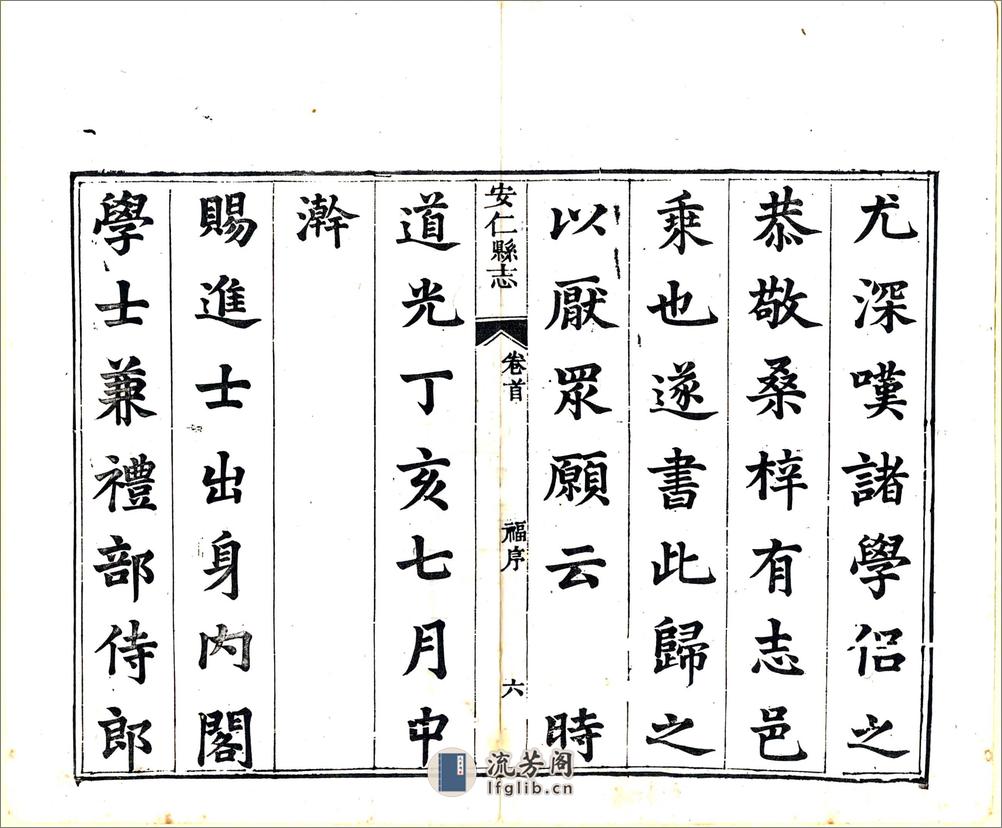 尤深嘆諸學侶之
恭敬桑梓有志邑
乘也遂書此歸之
以厭眾願云　時
安仁縣志
卷首
福序
六
道光丁亥七月中
澣
賜進士出身內閣
學士兼禮部侍郎
流芳阁
lfglib.cn